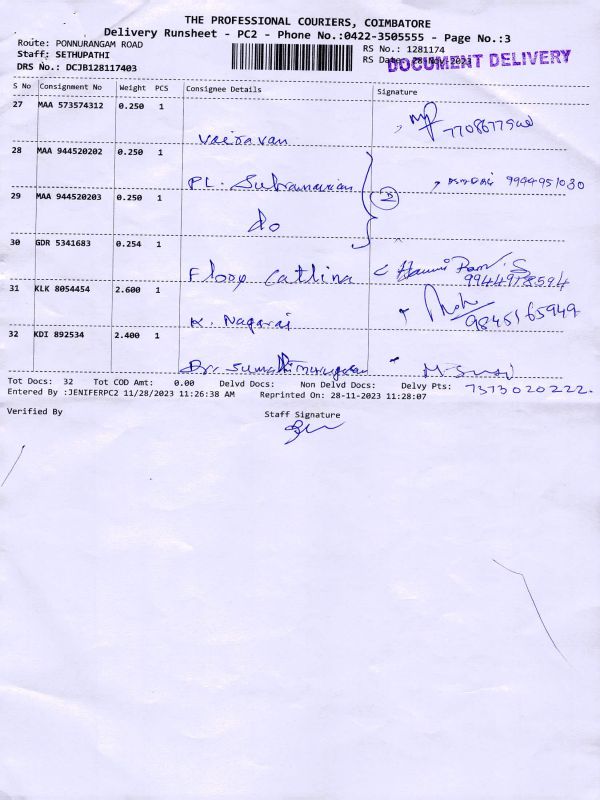 THE PROFESSIONAL COURIERS, COIMBATORE
Delivery Runsheet - PC2 - Phone No.:0422-3505555 - Page No.:3
Route: PONNURANGAM ROAD
RS No.: 1281174
Staff: SETHUPATHI
RS Date: 28-Nov-2023
DOCUMENT DELIVERY
DRS No.: DCJB128117403
S No Consignment No Weight PCS Consignee Details Signature
27 MAA 573574312 0.250 1
Vairavan
28 MAA 944520202 0.250 1
PL. Subramanian 9944951030
29 MAA 944520203 0.250 1
do
30 GDR 5341683 0.254 1
Flory Cathina
9944918594
31 KLK 8054454 2.600 1
K. Nagaraj 9845165949
32 KDI 892534 2.400 1
Dr.
Tot Docs: 32 Tot COD Amt: 0.00 Delvd Docs: Non Delvd Docs: Delvy Pts: 7373020222.
Entered By :JENIFERPC2 11/28/2023 11:26:38 AM Reprinted On: 28-11-2023 11:28:07
Verified By Staff Signature